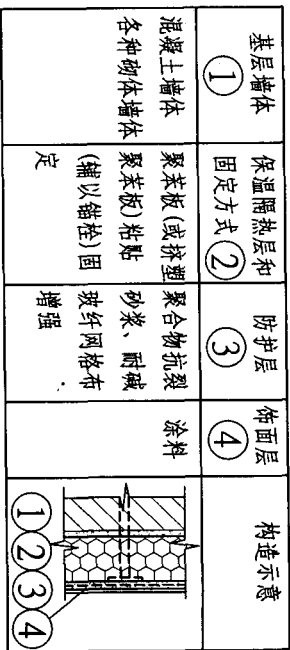 基层墙体
①
保温隔热层和
固定方式②
防护层
③
饰面层
④
构造示意
混凝土墙体
各种砌体墙体
聚苯板(或挤塑
聚苯板)粘贴
(辅以锚栓)固
定
聚合物抗裂
砂浆、耐碱
玻纤网格布
增强
涂料
①②③④